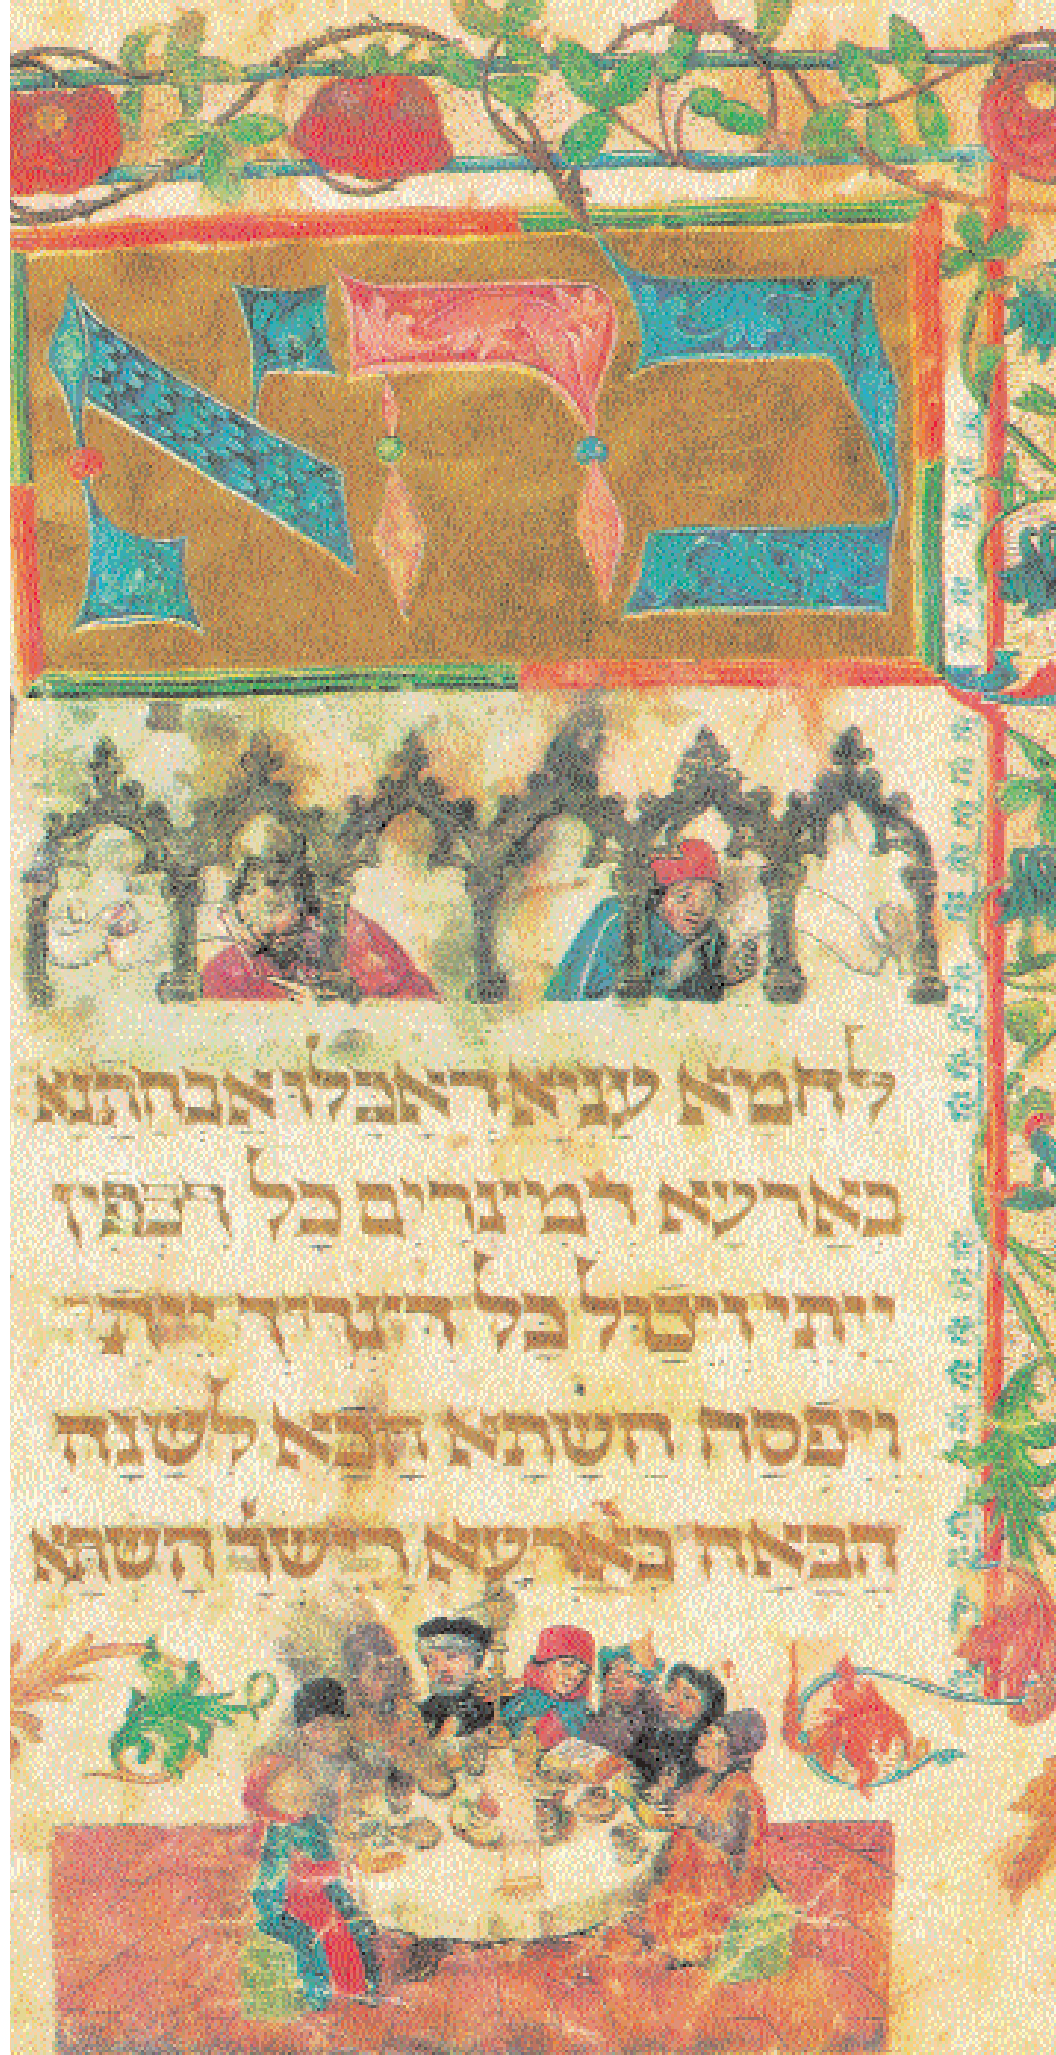 כהא
לחמא עניא דאכלו אבהתנא
בארעא דמצרים כל דכפין
ייתי ויכול כל דצריך ייתי
ויפסח השתא הכא לשנה
הבאה בארעא דישר השתא